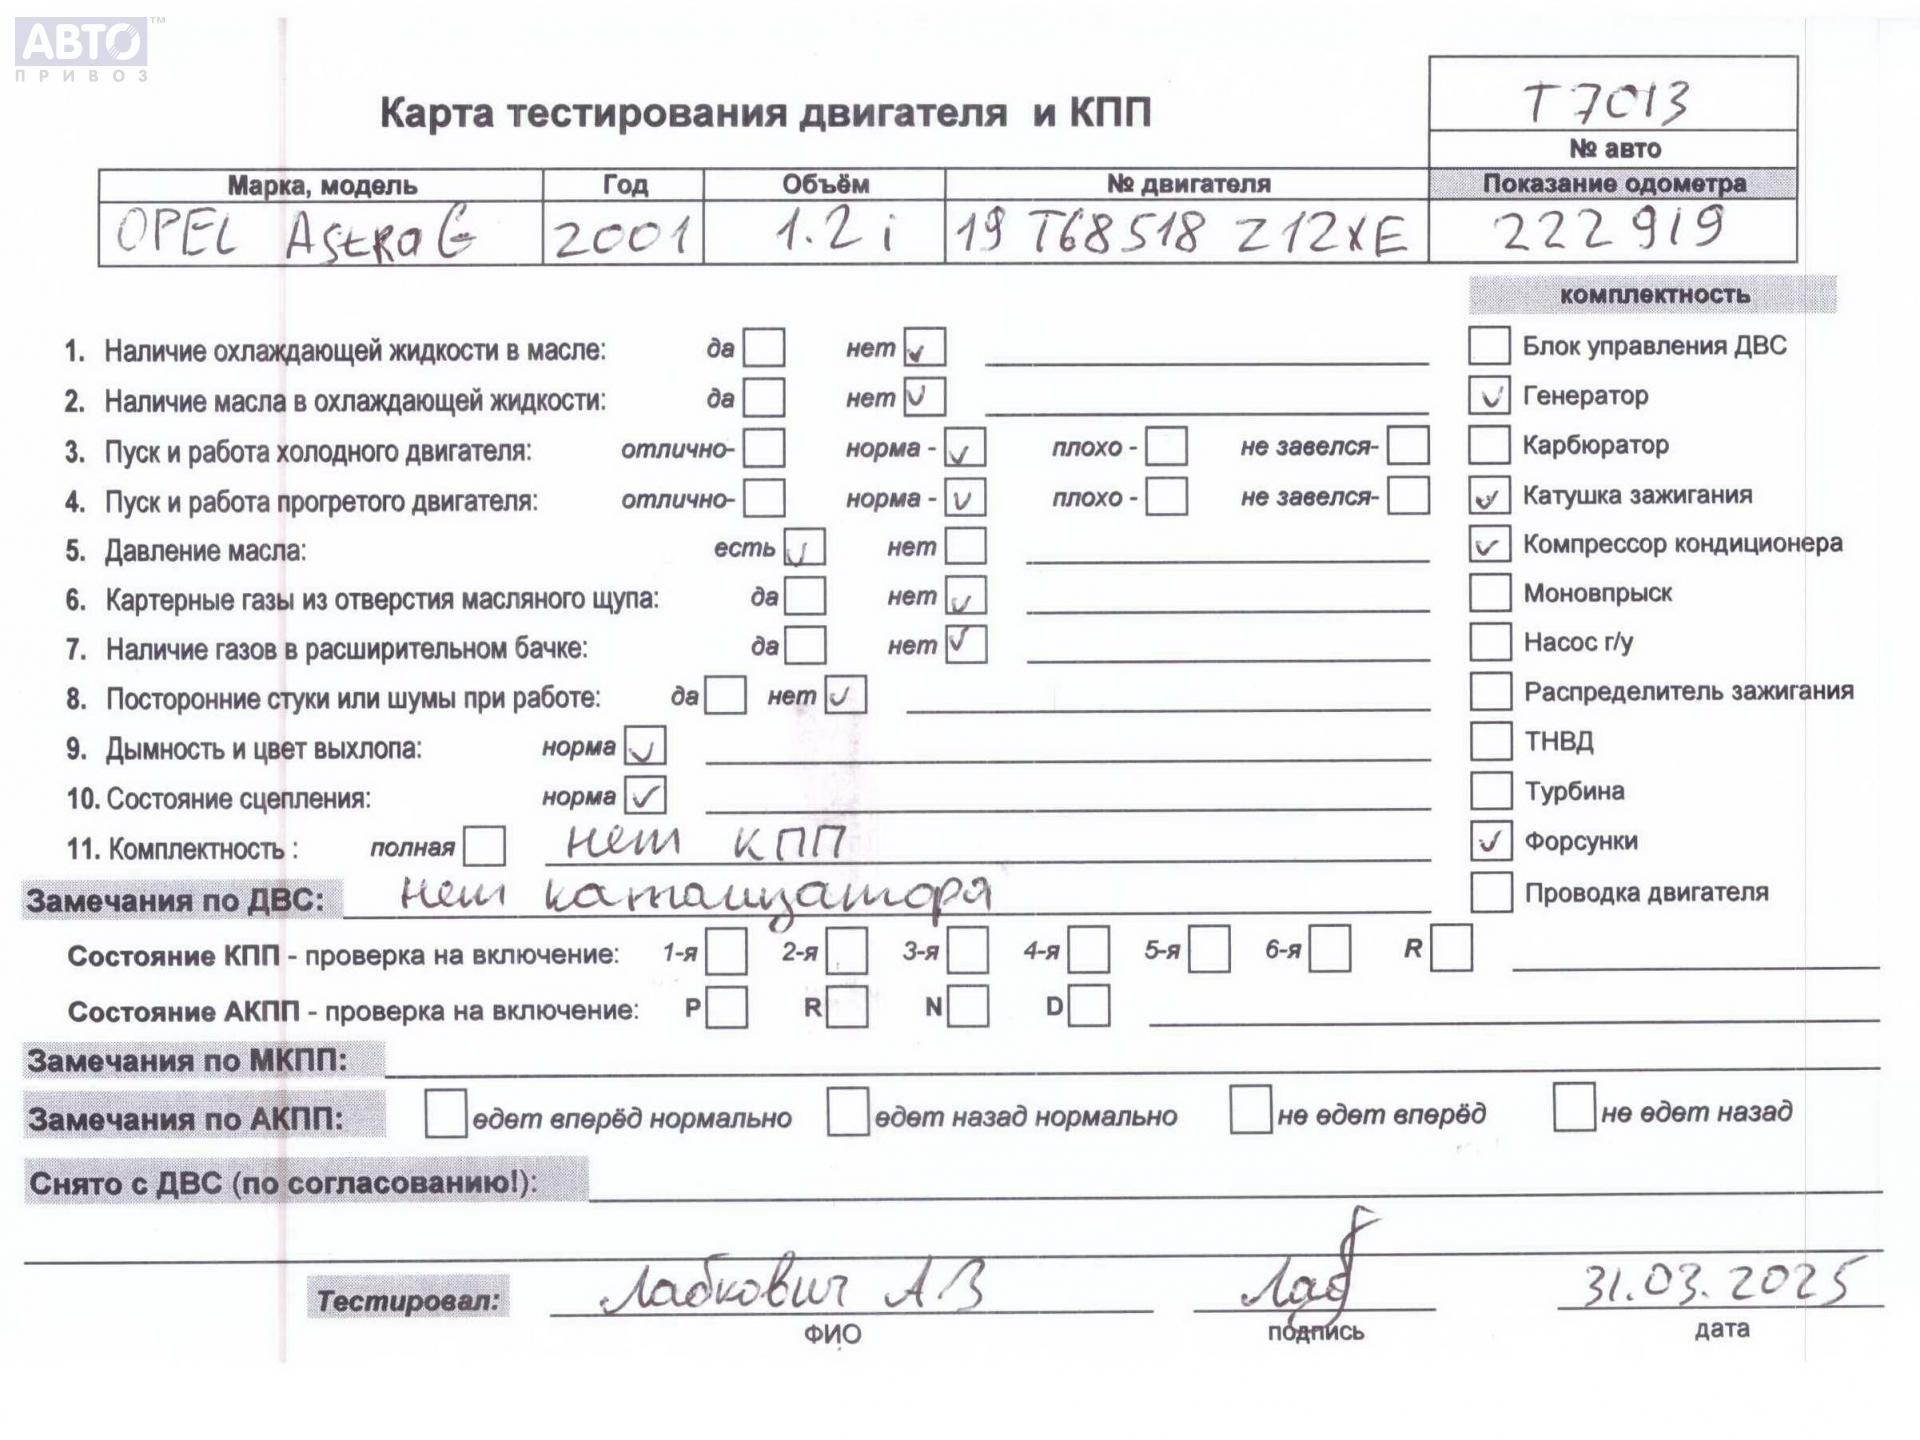 АВТО™
ПРИВОЗ
Т 7013
Карта тестирования двигателя и КПП
№ авто
Марка, модель Год Объём № двигателя Показание одометра
OPEL Astra G 2001 1.2 i 19 T68518 Z12XE 222 919
комплектность
1. Наличие охлаждающей жидкости в масле: да нет ✓ Блок управления ДВС
2. Наличие масла в охлаждающей жидкости: да нет ✓ ✓ Генератор
3. Пуск и работа холодного двигателя: отлично- норма - ✓ плохо - не завелся- Карбюратор
4. Пуск и работа прогретого двигателя: отлично- норма - ✓ плохо - не завелся- ✓ Катушка зажигания
5. Давление масла: есть ✓ нет ✓ Компрессор кондиционера
6. Картерные газы из отверстия масляного щупа: да нет ✓ Моновпрыск
7. Наличие газов в расширительном бачке: да нет ✓ Насос г/у
8. Посторонние стуки или шумы при работе: да нет ✓ Распределитель зажигания
9. Дымность и цвет выхлопа: норма ✓ ТНВД
10. Состояние сцепления: норма ✓ Турбина
11. Комплектность : полная нет КПП ✓ Форсунки
Замечания по ДВС: нет катализатора Проводка двигателя
Состояние КПП - проверка на включение: 1-я 2-я 3-я 4-я 5-я 6-я R
Состояние АКПП - проверка на включение: P R N D
Замечания по МКПП:
Замечания по АКПП: едет вперёд нормально едет назад нормально не едет вперёд не едет назад
Снято с ДВС (по согласованию!):
Тестировал: Лабкович А В Лаб 31.03.2025
ФИО подпись дата